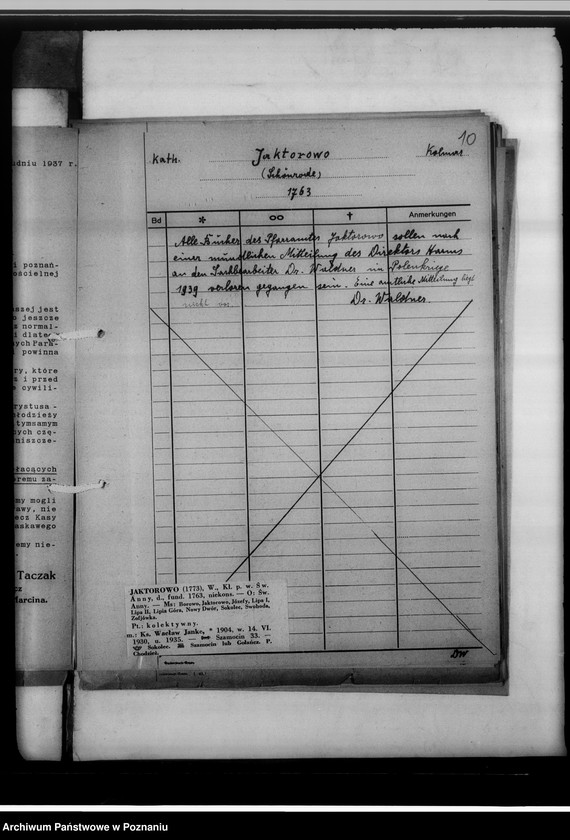 udniu 1937 r.
i poznań-
ościelnej
aszej jest
o jeszcze
z normal-
i dlatego
ych Para-
powinna
ry, które
z i przed
cywili-
rystusa -
łodzieży
tymsamym
ych czę-
niszcze-
łacących
remu za-
my mogli
awy, nie
ecz Kasy
aakawego
emy nie-
Taczak
cz
Marcina.
10
kath. Jaktorowo Kolmar
(Schönrode)
1763
Bd * oo † Anmerkungen
Alle Bücher des Pfarramtes Jaktorowo sollen nach
einer mündlichen Mitteilung des Direktors Harms
an den Sachbearbeiter Dr. Waldner im Polenkriege
1939 verloren gegangen sein. Eine amtliche Mitteilung liegt
nicht vor. Dr. Waldner.
JAKTOROWO (1773), W., Kl. p. w. Św.
Anny, d., fund. 1763, niekons. — O: Św.
Anny. — Ms: Borowo, Jaktorowo, Józefy, Lipa I,
Lipa II, Lipia Góra, Nowy Dwór, Sokolec, Swoboda,
Zofjówka.
Pt.: kolektywny.
m.: Ks. Wacław Janke, * 1904, w. 14. VI.
1930, u. 1935. — Szamocin 33. —
Sokolec. Szamocin lub Gołańcz. P.
Chodzież.
DW
Archiwum Państwowe w Poznaniu